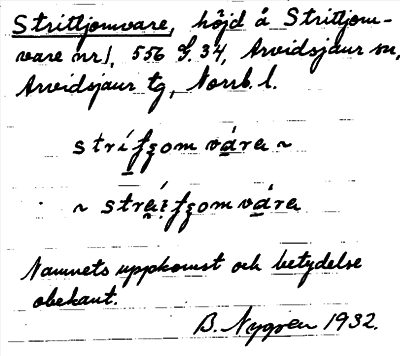 Strittjomvare, höjd å Strittjom-
vare nr 1, 556 G. 34, Arvidsjaur sn,
Arvidsjaur tg, Norrb. l.
Namnets uppkomst och betydelse
obekant.
B. Nygren 1932.